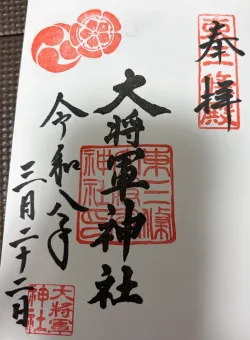 奉拝
大将軍神社
令和八年
三月二十二日
東三條
大将軍
神社